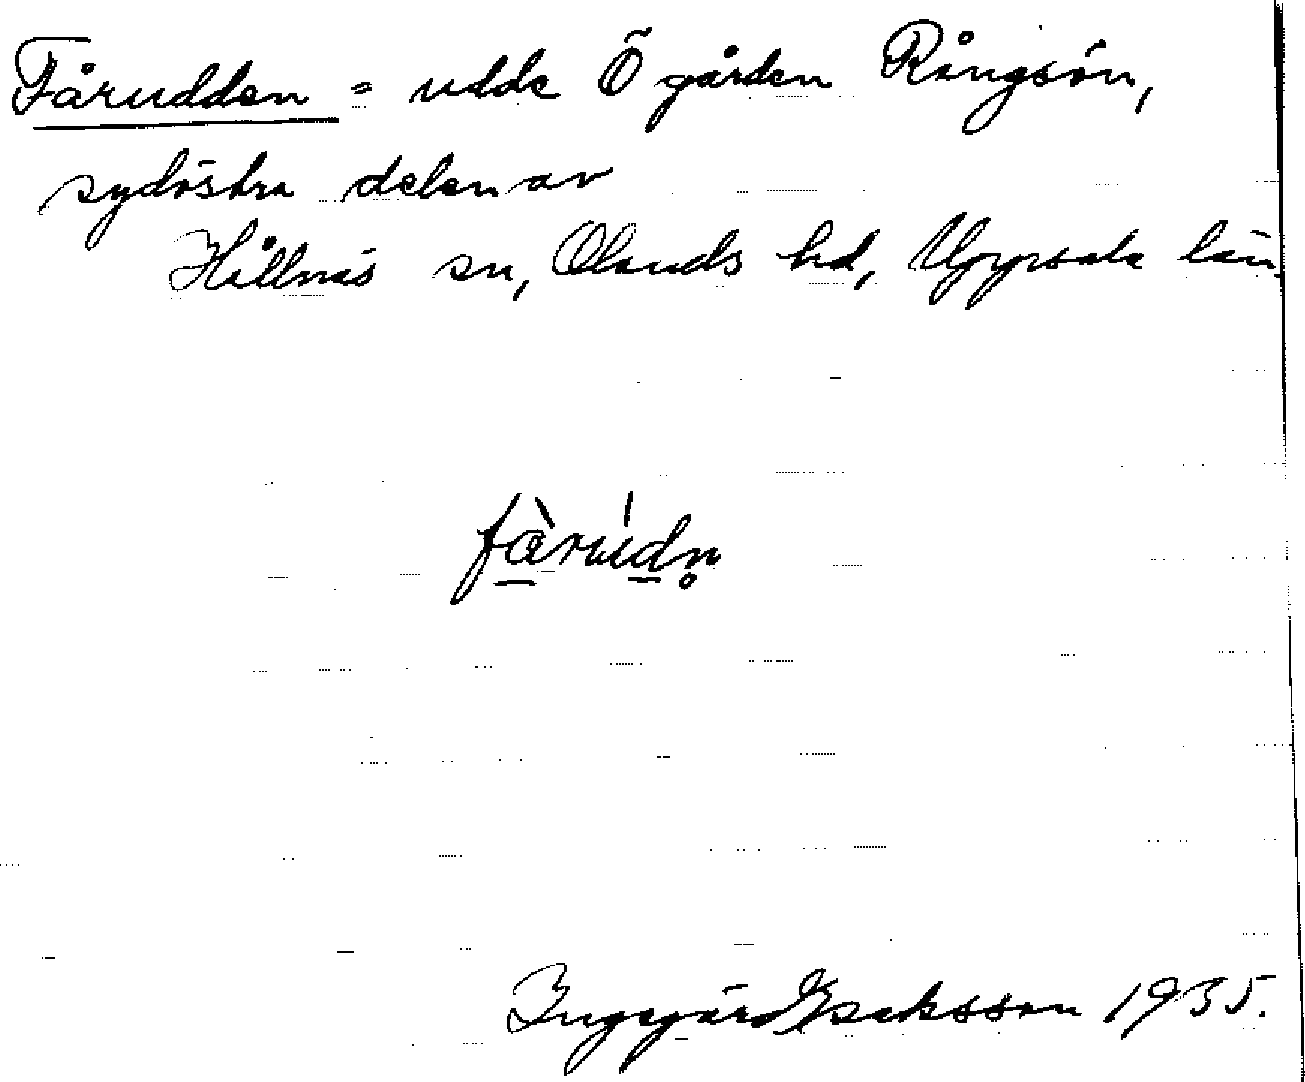 Fårudden = udde Ö gården Rångsön,
sydöstra delen av
Hållnäs sn, Olands hd, Uppsala län.
fàrúdn̥
Ingegärd Isaksson 1935.